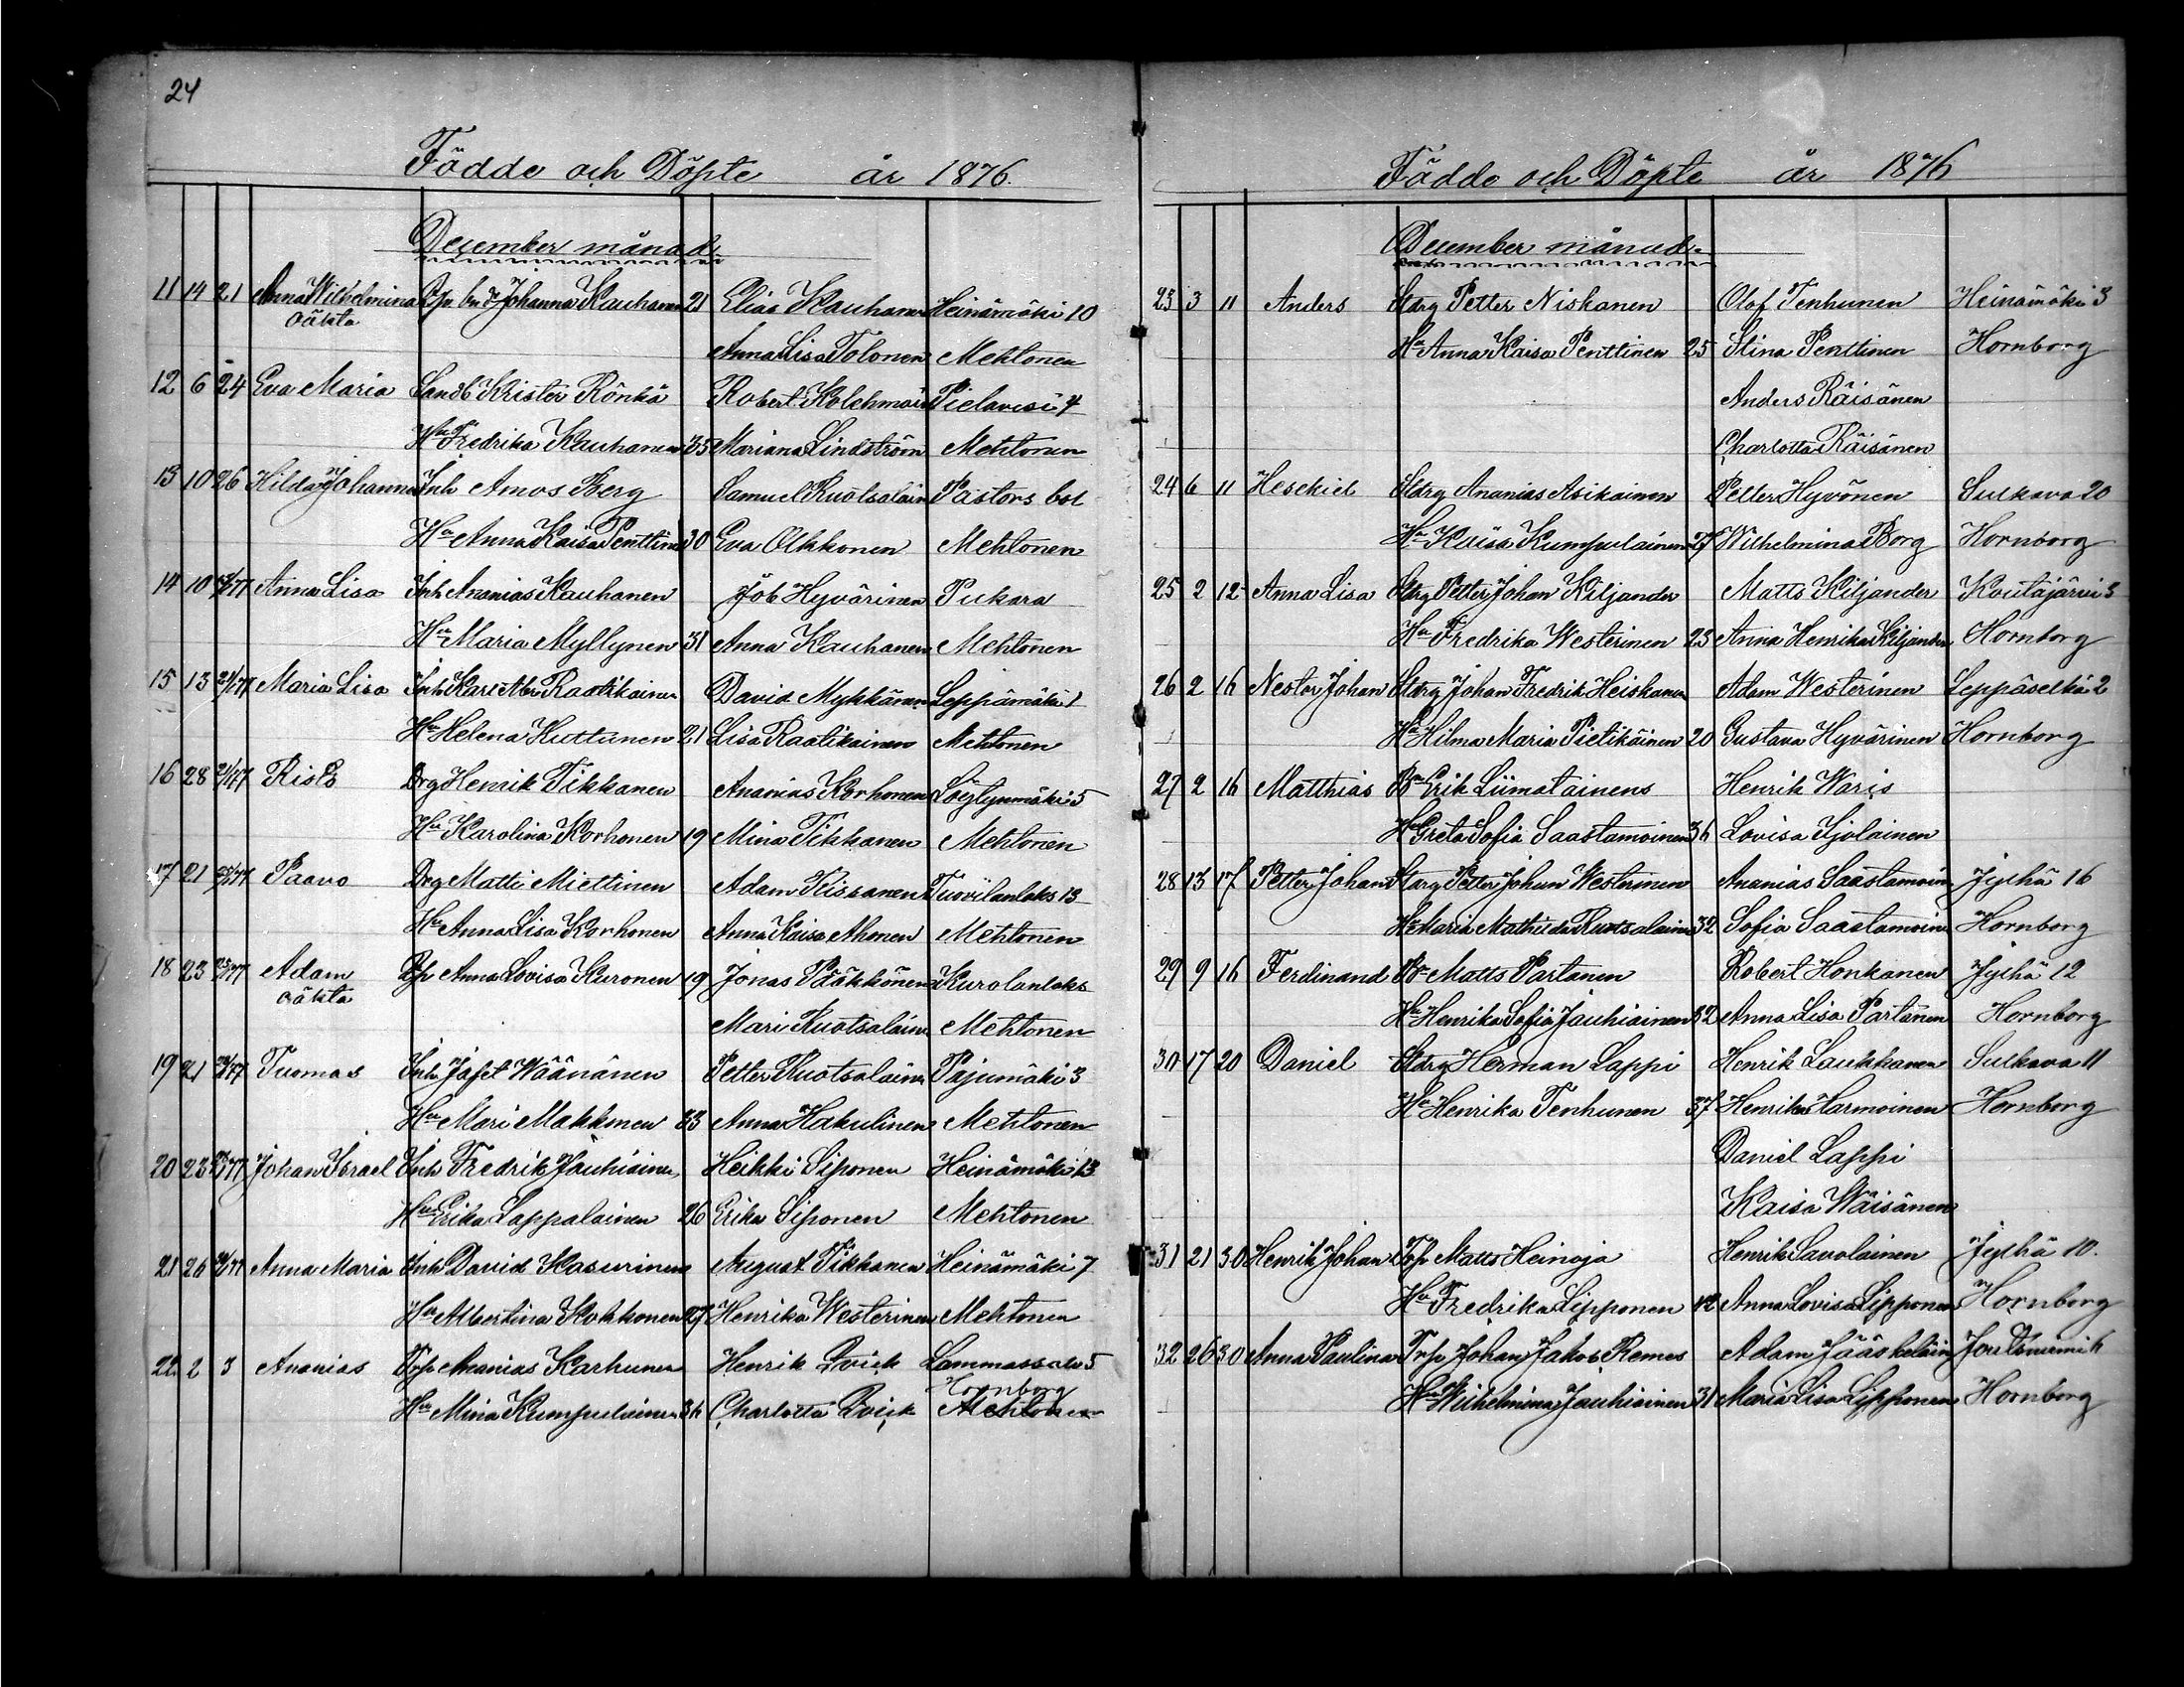 24
Födde och Döpte år 1876.
December månad
11 14 21 Anna Wilhelmina Johanna Kauhanen 21 Elias Kauhanen Heinämäki 10
oäkta
Anna Lisa Tolonen Mehtonen
12 6 24 Eva Maria Krister Rönkä Robert Kolehmain Pielavesi 4
Hu Fredrika Kauhanen 35 Mariana Lindström Mehtonen
13 10 26 Hilda Johanna Inh Amos Berg Samuel Ruotsalain Pastors bol
Hu Anna Kaisa Penttine 30 Eva Olkkonen Mehtonen
14 10 Anna Lisa Inh Ananias Kauhanen Job Hyvärinen Pukara
Hu Maria Myllynen 31 Anna Kauhanen Mehtonen
15 13 21/1 77 Maria Lisa Inh Karl Abr Raatikainen David Mykkänen Leppämäki 1
Hu Helena Huttunen 21 Lisa Raatikainen Mehtonen
16 28 21/1 77 Risto Drg Henrik Tikkanen Ananias Korhonen Löytynmäki 5
Hu Karolina Korhonen 19 Mina Tikkanen Mehtonen
17 21 Paavo Drg Matti Miettinen Adam Pissanen Tuovilanlaks 13
Hu Anna Lisa Korhonen Anna Kaisa Ahonen Mehtonen
18 23 Adam Anna Lovisa Kuronen 19 Jonas Pääkkönen Kurolanlaks
oäkta
Mari Ruotsalain Mehtonen
19 21 Tuomas Inh Jafet Wäänänen Petter Ruotsalain Pajumäki 3
Hu Mari Makkonen 33 Anna Hakulinen Mehtonen
20 23 Johan Israel Inh Fredrik Jauhiainen Heikki Siponen Heinämäki 13
Hu Erika Lappalainen 26 Erika Siponen Mehtonen
21 26 Anna Maria Inh David Kasurinen August Tikkanen Heinämäki 7
Hu Albertina Kokkonen 27 Henrika Westerinen Mehtonen
22 2 3 Ananias Trp Ananias Karhunen Henrik Qvick Lammassalo 5
Hornborg
Hu Mina Kumpulainen 36 Charlotta Qvick Mehtonen
Födde och Döpte år 1876
December månad
23 3 11 Anders Stdrg Petter Niskanen Olof Tenhunen Heinämäki 3
Hu Anna Kaisa Penttinen 25 Stina Penttinen Hornborg
Anders Räisänen
Charlotta Räisänen
24 6 11 Hesekiel Stdrg Ananias Asikainen Petter Hyvönen Sulkava 20
Hu Kaisa Kumpulainen 27 Wilhelmina Borg Hornborg
25 2 12 Anna Lisa Stdrg Petter Johan Kiljander Matts Kiljander Koutajärvi 3
Hu Fredrika Westerinen 23 Anna Henrika Kiljander Hornborg
26 2 16 Nestor Johan Stdrg Johan Fredrik Heiskanen Adam Westerinen Leppäselkä 2
Hu Hilma Maria Pietikäinen 20 Gustava Hyvärinen Hornborg
27 2 16 Matthias Bn Erik Liimatainens Henrik Waris
Hu Greta Sofia Saastamoinen 36 Lovisa Tjolainen
28 13 17 Petter Johan Stdrg Petter Johan Westerinen Ananias Saastamoin Jylhä 16
Hu Maria Mathilda Ruotsalainen 32 Sofia Saastamoin Hornborg
29 9 16 Ferdinand Bn Matts Partanen Robert Honkanen Jylhä 12
Hu Henrika Sofia Jauhiainen 32 Anna Lisa Partanen Hornborg
30 17 20 Daniel Stdrg Herman Lappi Henrik Laukkanen Sulkava 11
Hu Henrika Tenhunen 37 Henrika Harmoinen Hornborg
Daniel Lappi
Kaisa Wäisänen
31 21 30 Henrik Johan Trp Matts Heinoja Henrik Savolainen Jylhä 10.
Hu Fredrika Lipponen 42 Anna Lovisa Lipponen Hornborg
32 26 30 Anna Paulina Trp Johan Jakob Remes Adam Jääskeläin Joutsniemi 6
Hu Wilhelmina Jauhiainen 31 Maria Lisa Lipponen Hornborg